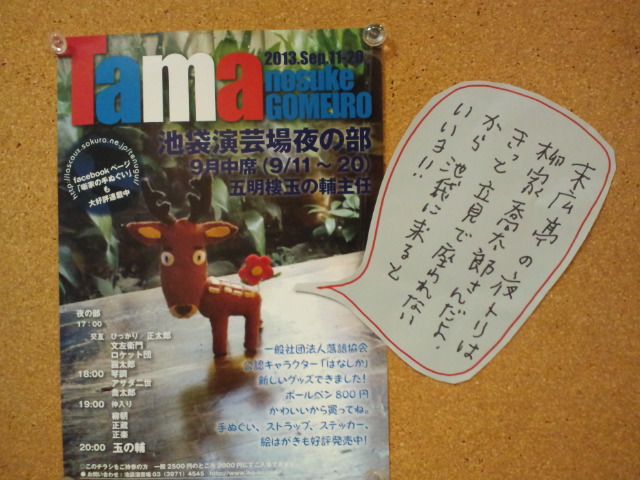 Tama
2013.Sep.11-20
nosuke
GOMEIRO
池袋演芸場夜の部
9月中席(9/11～20)
五明樓玉の輔主任
facebookページ
「噺家の手ぬぐい」
も
大好評連載中
夜の部
17:00
交互 ひっかり／正太郎
文左衛門
ロケット団
18:00 琴調
アサダ二世
喬太郎
19:00 仲入り
柳朝
正蔵
正楽
20:00 玉の輔
一般社団法人落語協会
公認キャラクター「はなしか」
新しいグッズできました！
ボールペン800円
かわいいから買ってね。
手ぬぐい、ストラップ、ステッカー、
絵はがきも好評発売中！
◎このチラシをご持参の方 一般2500円のところ2000円にてご入場できます
●お問い合わせ：池袋演芸場 03 (3971) 4545
末広亭の夜トリは
柳家喬太郎さんだよ。
きっと立見で座われない
から池袋に来ると
いいよ!!